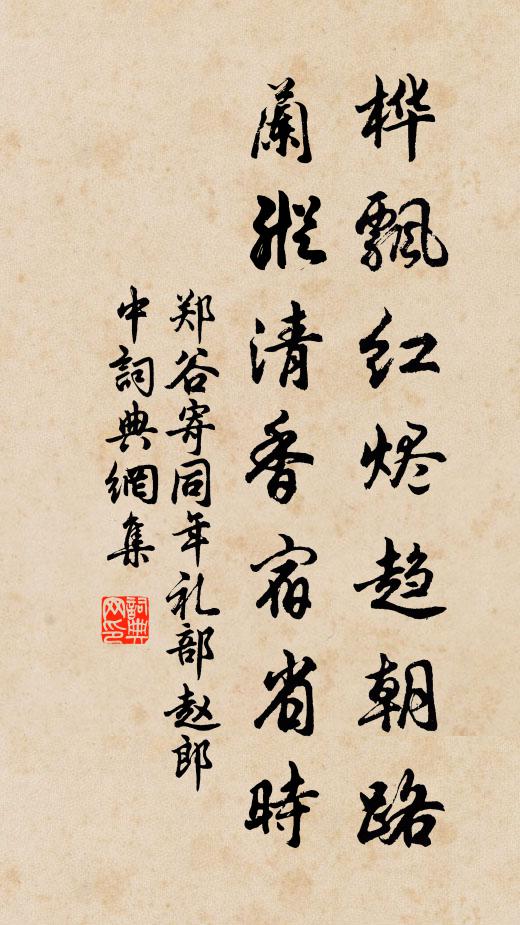 桦飘红烬趋朝路
兰纵清香宿省时
郑谷寄同年礼部赵郎
中词典網集
詞典
网印